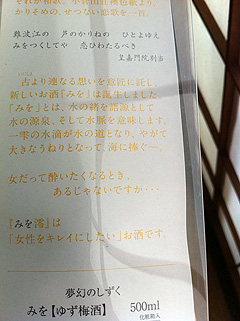 それが和歌、小倉山荘色紙より、
かりそめの、せつない恋歌を一首。
難波江の 芦のかりねの ひとよゆえ
みをつくしてや 恋ひわたるべき
皇嘉門院別当
古より連なる想いを意匠に託し、
新しいお酒『みを』は誕生しました。
『みを』とは、水の緒を語源として
水の源泉、そして水脈を意味します。
一雫の水滴が水の道となり、やがて
大きなうねりとなって、海に捧ぐ―。
女だって酔いたくなるとき、
あるじゃないですか・・・
『みを澪』は
『女性をキレイにしたい』お酒です。
夢幻のしずく
みを【ゆず梅酒】 500ml
化粧箱入